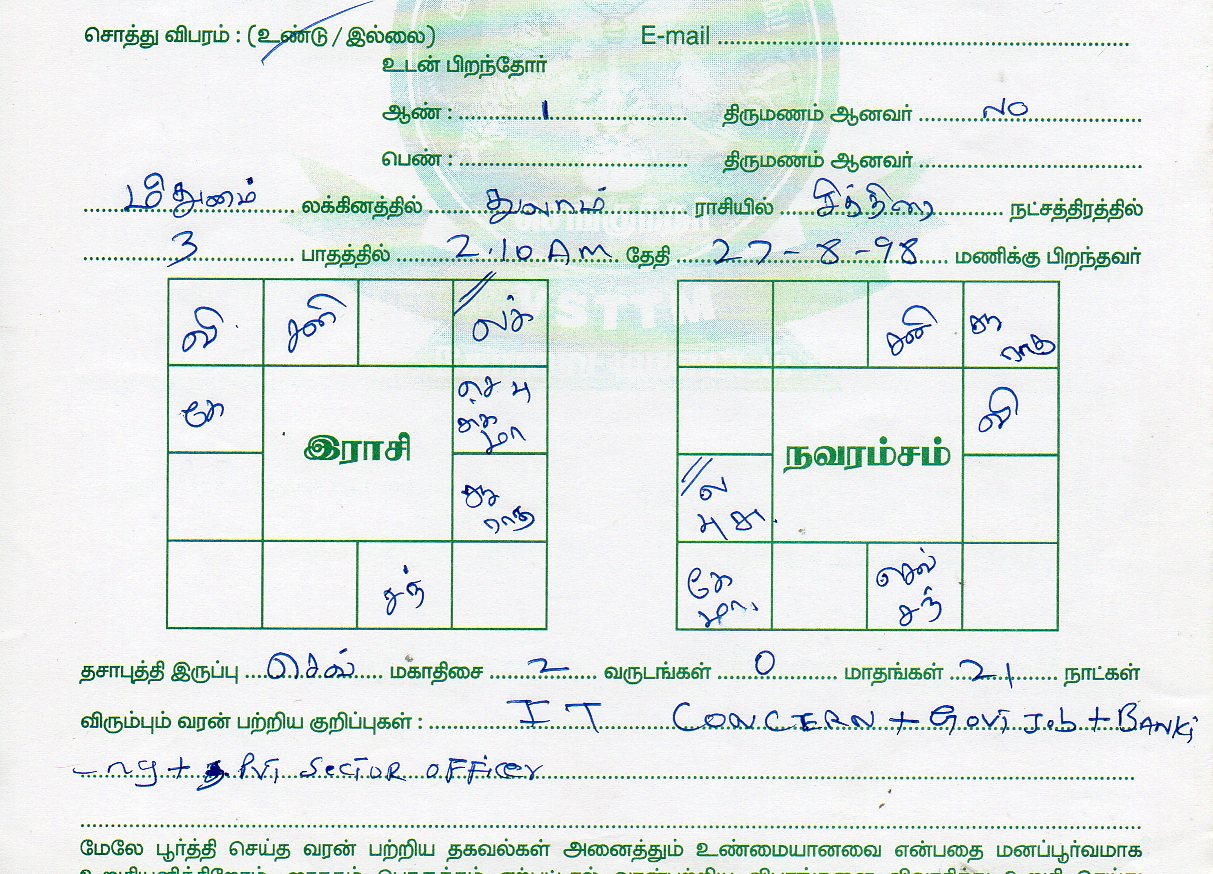 சொத்து விபரம் : (உண்டு / இல்லை) E-mail
உடன் பிறந்தோர்
ஆண் : 1 திருமணம் ஆனவர் No
பெண் : திருமணம் ஆனவர்
மிதுனம் லக்கினத்தில் துலாம் ராசியில் சித்திரை நட்சத்திரத்தில்
3 பாதத்தில் 2.10 AM தேதி 27-8-98 மணிக்கு பிறந்தவர்
வி சனி லக்
கே செ பு
சுக்
மா
இராசி
சூ
ராகு
சந்
சனி சூ
ராகு
வி
நவரம்சம்
ல
பு சு
கே
மா
செவ்
சந்
தசாபுத்தி இருப்பு செவ் மகாதிசை 2 வருடங்கள் 0 மாதங்கள் 21 நாட்கள்
விரும்பும் வரன் பற்றிய குறிப்புகள் : IT CONCERN + Govt Job + BANKi
-ng + Pvt Sector officer
மேலே பூர்த்தி செய்த வரன் பற்றிய தகவல்கள் அனைத்தும் உண்மையானவை என்பதை மனப்பூர்வமாக